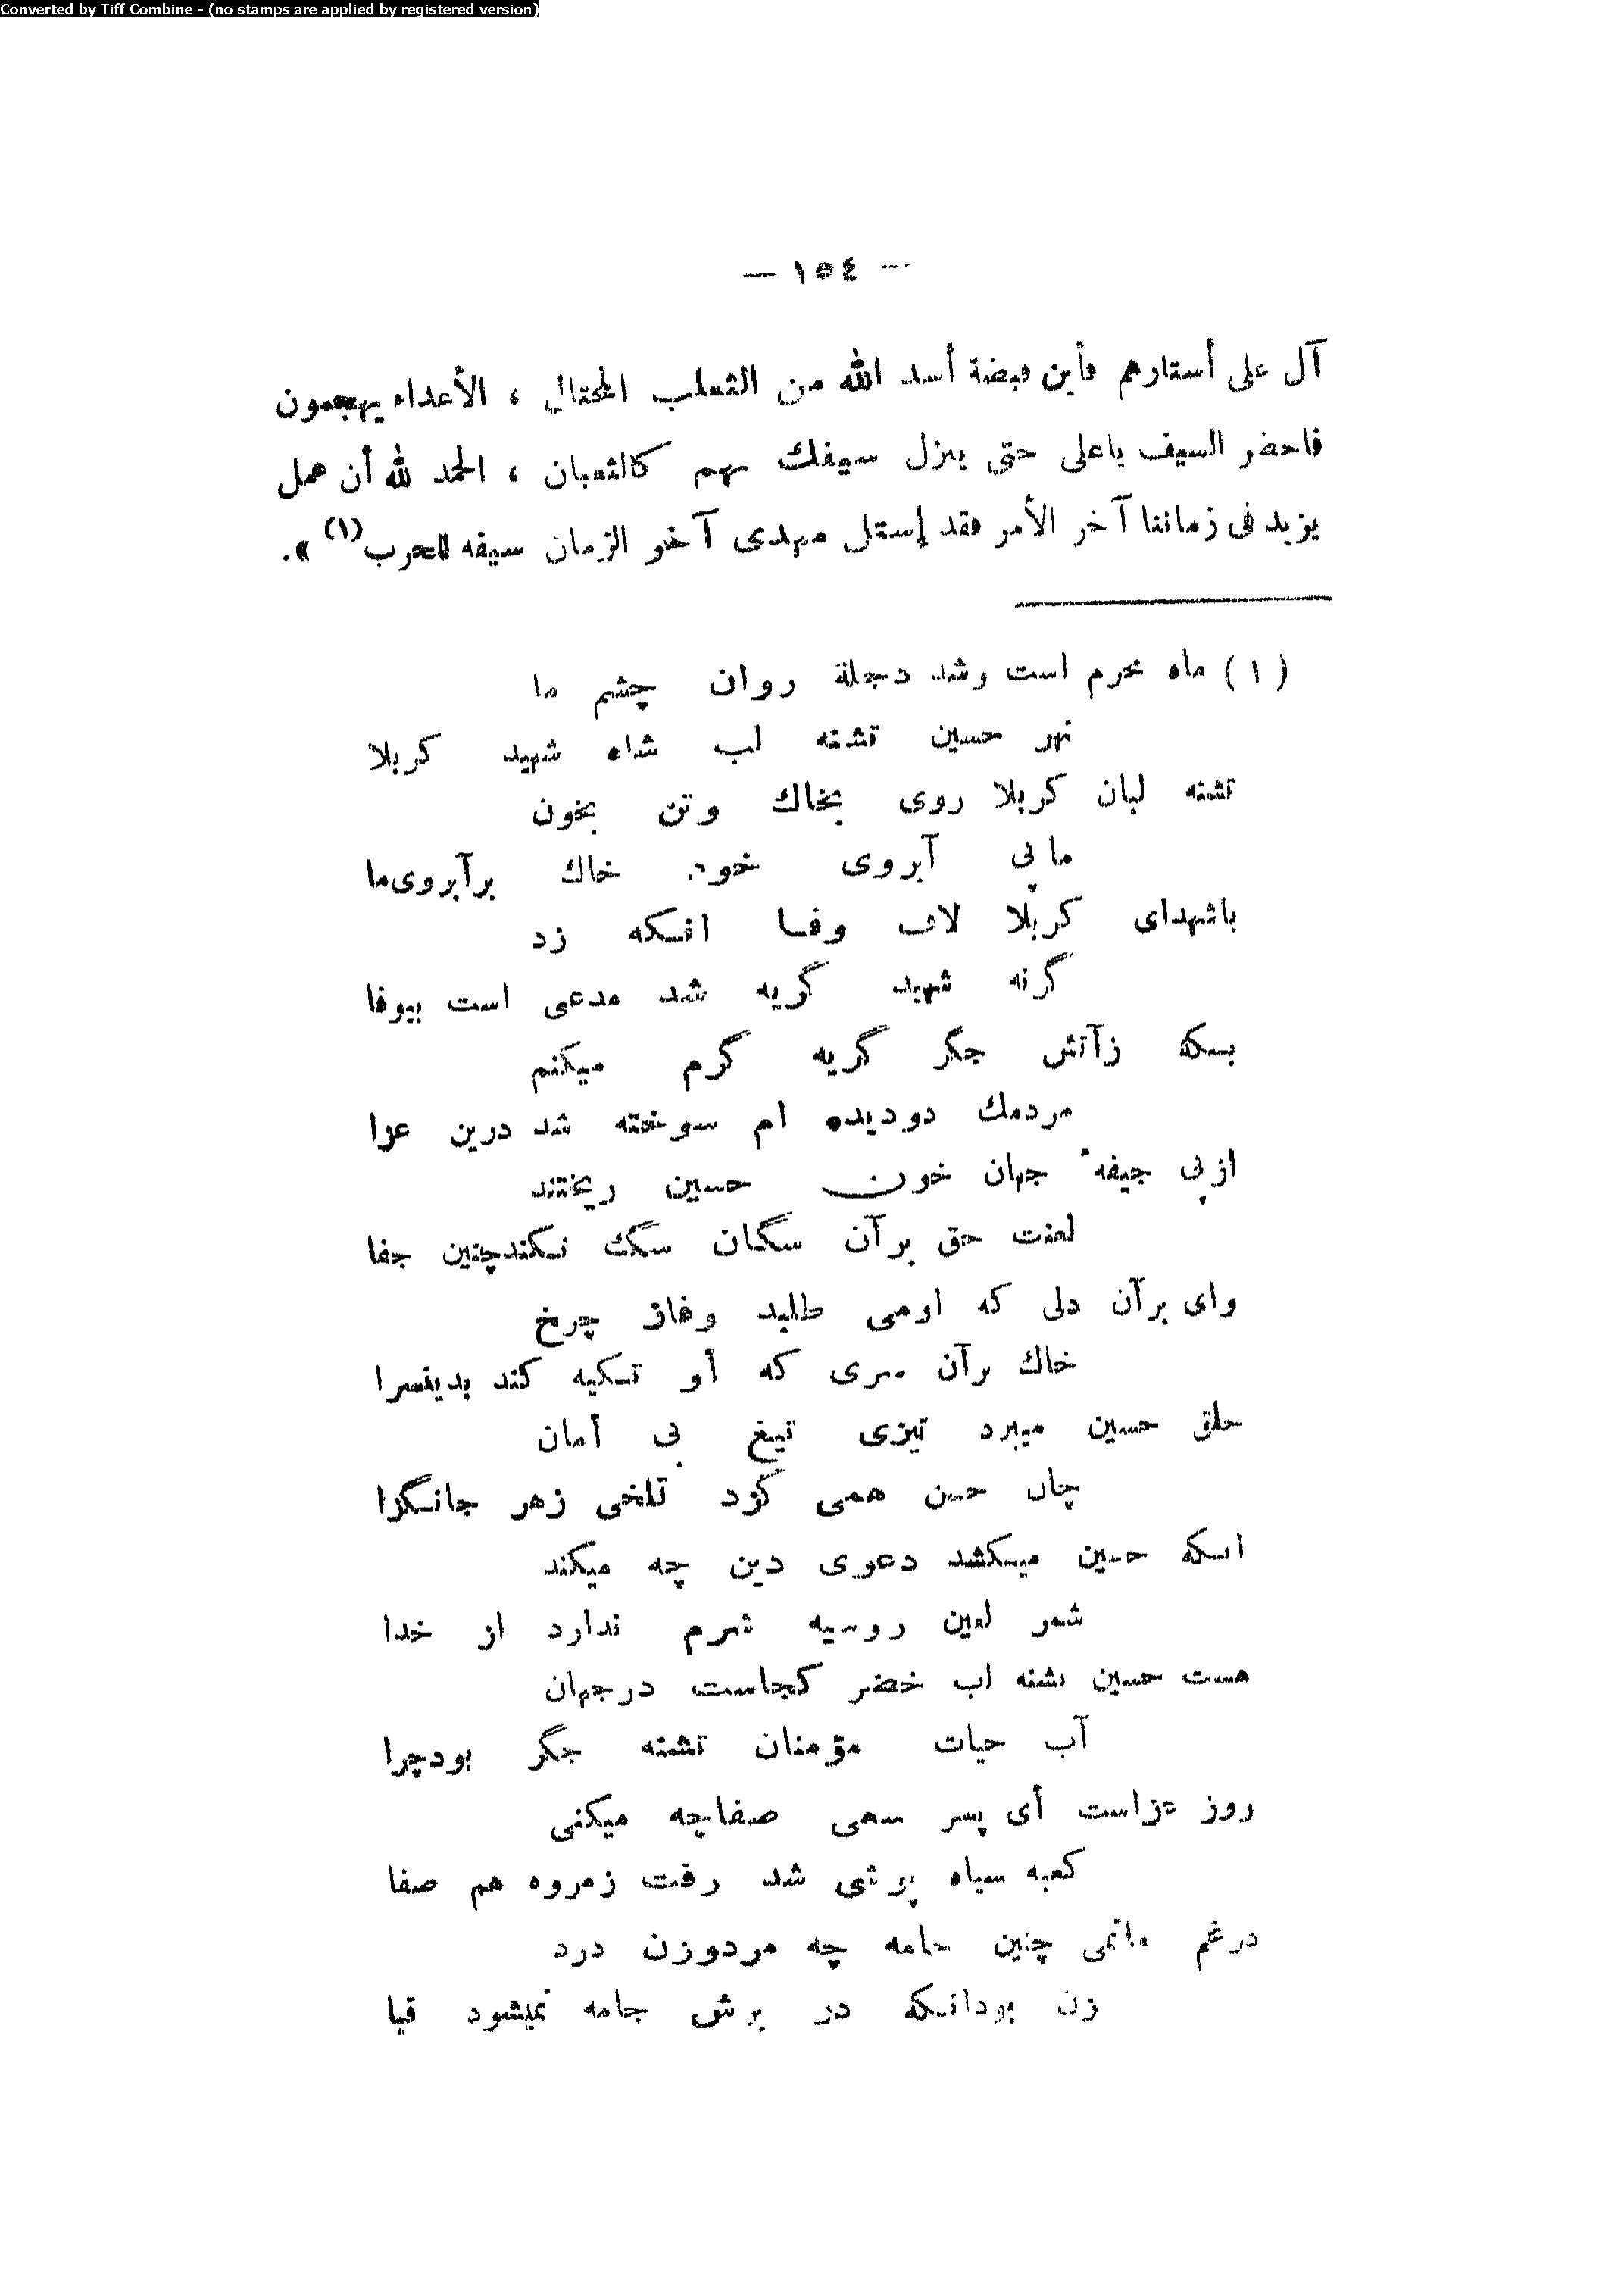 Converted by Tiff Combine - (no stamps are applied by registered version)
— ١٥٤ —
آل على أستارهم فأين قبضة أسد الله من الثعلب المحتال ، الأعداء يهجمون
فاحضر السيف ياعلى حتى ينزل سيفك بهم كالثعبان ، الحمد لله أن عمل
يزيد فى زماننا آخر الأمر فقد إستل مهدى آخر الزمان سيفه للحرب (١) » .
(١) ماه محرم است وشد دجلة روان چشم ما
نهر حسين تشنه لب شاه شهيد كربلا
تشنه لبان كربلا روى بخاك وتن بخون
ماپى آبروى خود خاك برآبروى‌ما
باشهداى كربلا لاف وفا انكه زد
گرنه شهيد گريه شد مدعى است بيوفا
بسكه زآتش جگر گريه گرم ميكنم
مردمك دوديده ام سوخته شد درين عزا
ازپى جيفهٔ جهان خون حسين ريختند
لعنت حق برآن سگان سگ نكندچنين جفا
واى برآن دلى كه اومى طلبد وفاز چرخ
خاك برآن سرى كه أو تكيه كند بدينسرا
حلق حسين ميبرد تيزى تيغ بى أمان
جان حسن همى گزد تلخى زهر جانگزا
انكه حسين ميكشد دعوى دين چه ميكند
شمر لعين روسيه شرم ندارد از خدا
هست حسين تشنه لب خضر كجاست درجهان
آب حيات مؤمنان تشنه جگر بودچرا
روز عزاست أى پسر سعى صفاچه ميكنى
كعبه سياه پوش شد رفت زمروه هم صفا
درغم ماتمى چنين جامه چه مردوزن درد
زن بودانكه در برش جامه نميشود قبا